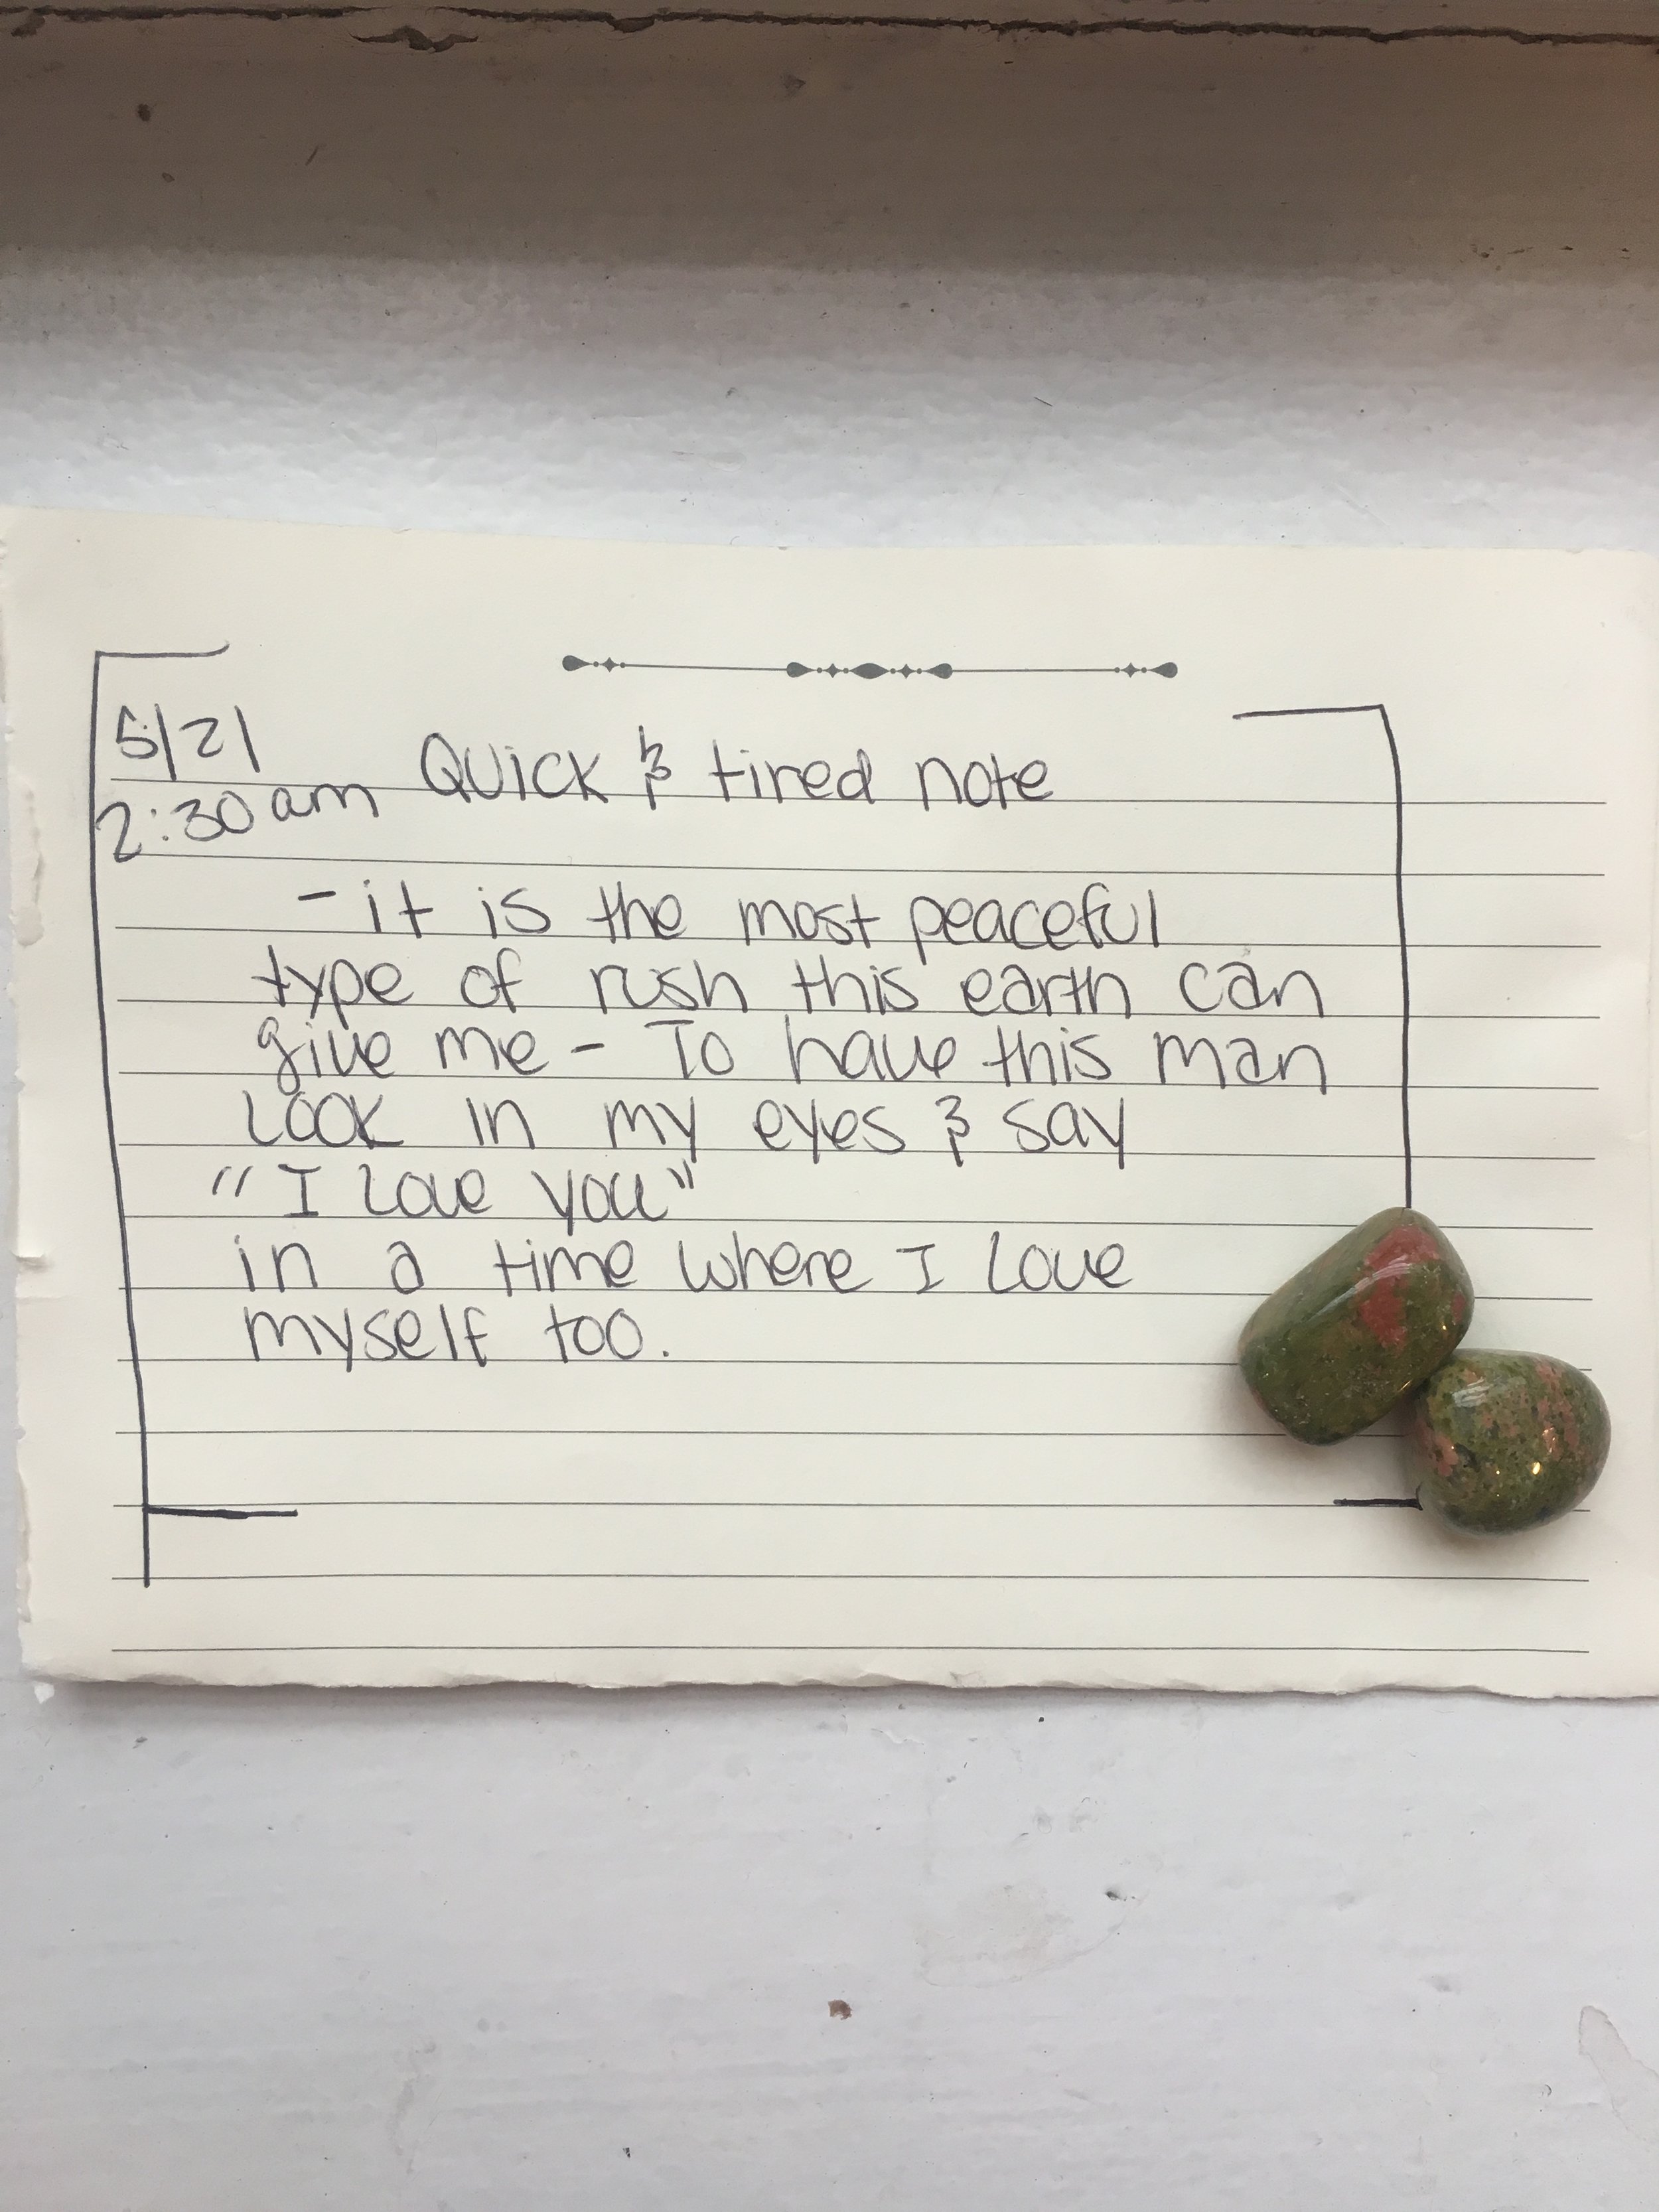 5/21
2:30am Quick & tired note
- it is the most peaceful
type of rush this earth can
give me - To have this man
look in my eyes & say
"I love you"
in a time where I love
myself too.